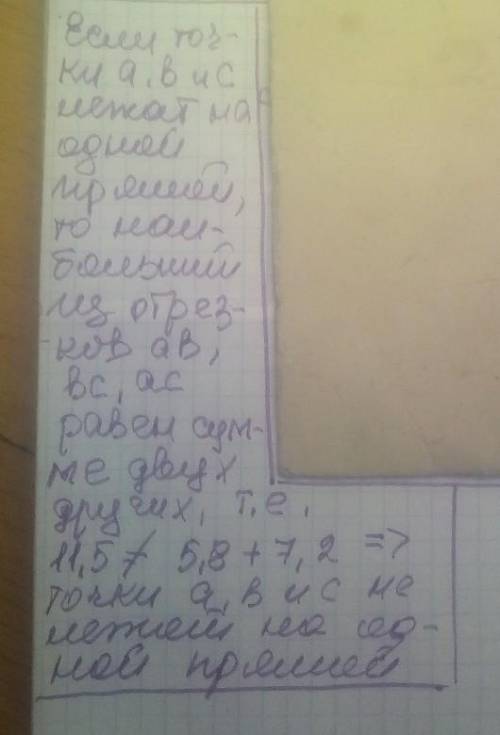 Если точ-
ки а, в и с
лежат на
одной
прямой,
то наи-
больший
из отрез-
ков ав,
вс, ас
равен сум-
ме двух
других, т.е.
11,5 ≠ 5,8 + 7,2 =>
точки а, в и с не
лежат на од-
ной прямой